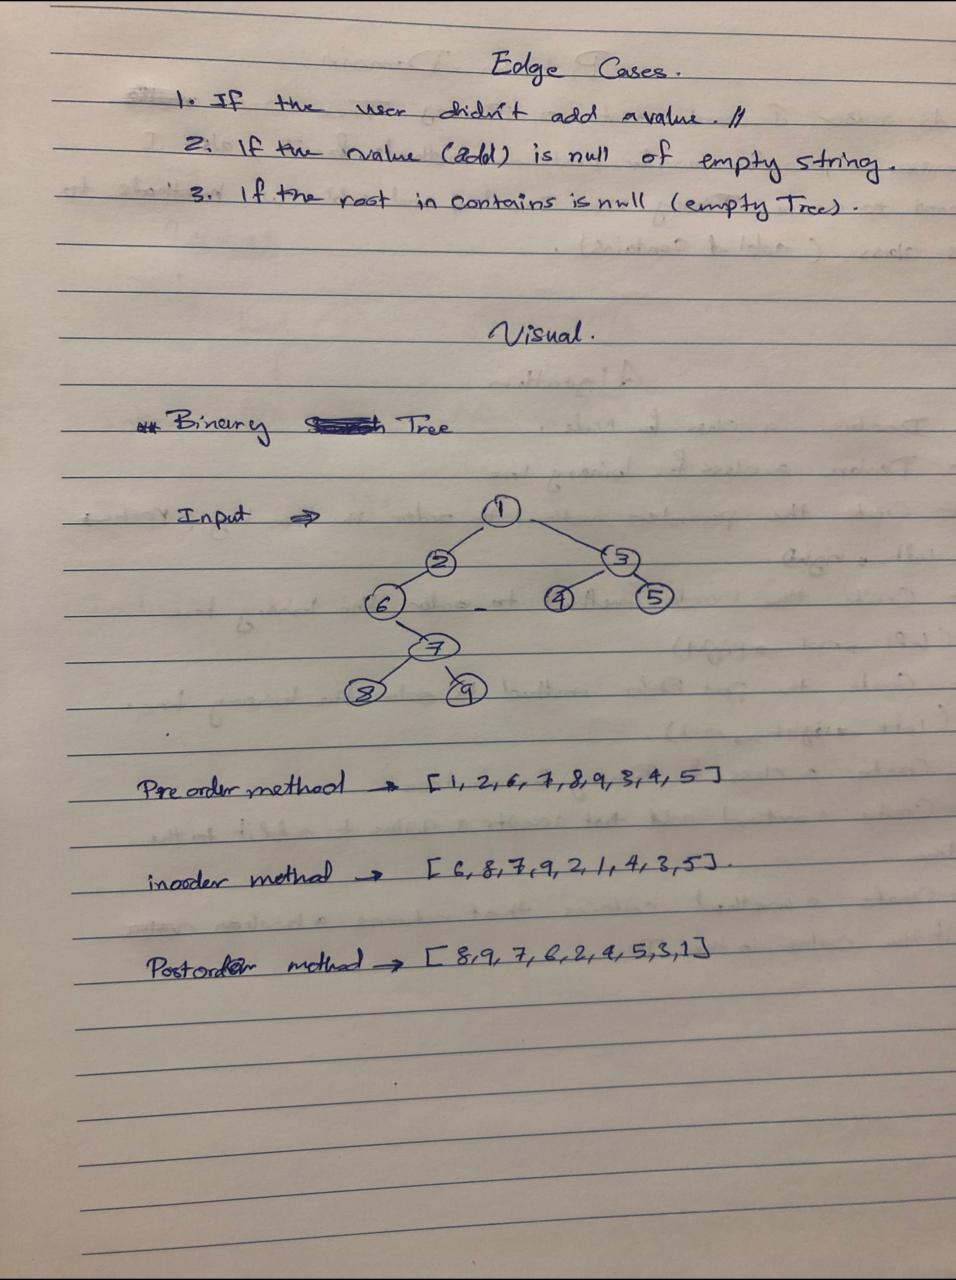 Edge Cases.
1. If the user didn't add a value. //
2. If the value (add) is null of empty string.
3. If the root in contains is null (empty Tree).
Visual.
** Binary Tree
Input →
1
2 3
6 4 5
7
8 9
Pre order method → [1, 2, 6, 7, 8, 9, 3, 4, 5]
inorder method → [6, 8, 7, 9, 2, 1, 4, 3, 5].
Postorder method → [8, 9, 7, 6, 2, 4, 5, 3, 1]